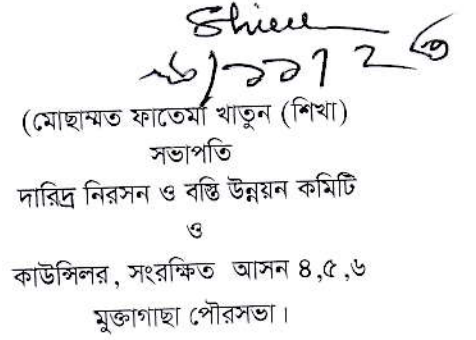 (মোছাম্মত ফাতেমা খাতুন (শিখা)
সভাপতি
দারিদ্র নিরসন ও বস্তি উন্নয়ন কমিটি
ও
কাউন্সিলর, সংরক্ষিত আসন ৪,৫,৬
মুক্তাগাছা পৌরসভা।